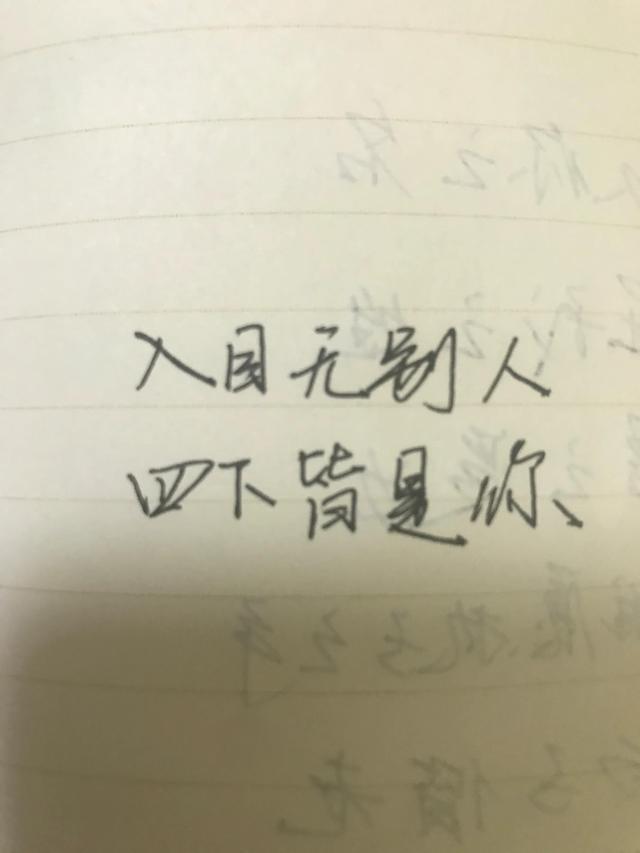 入目无别人
四下皆是你、